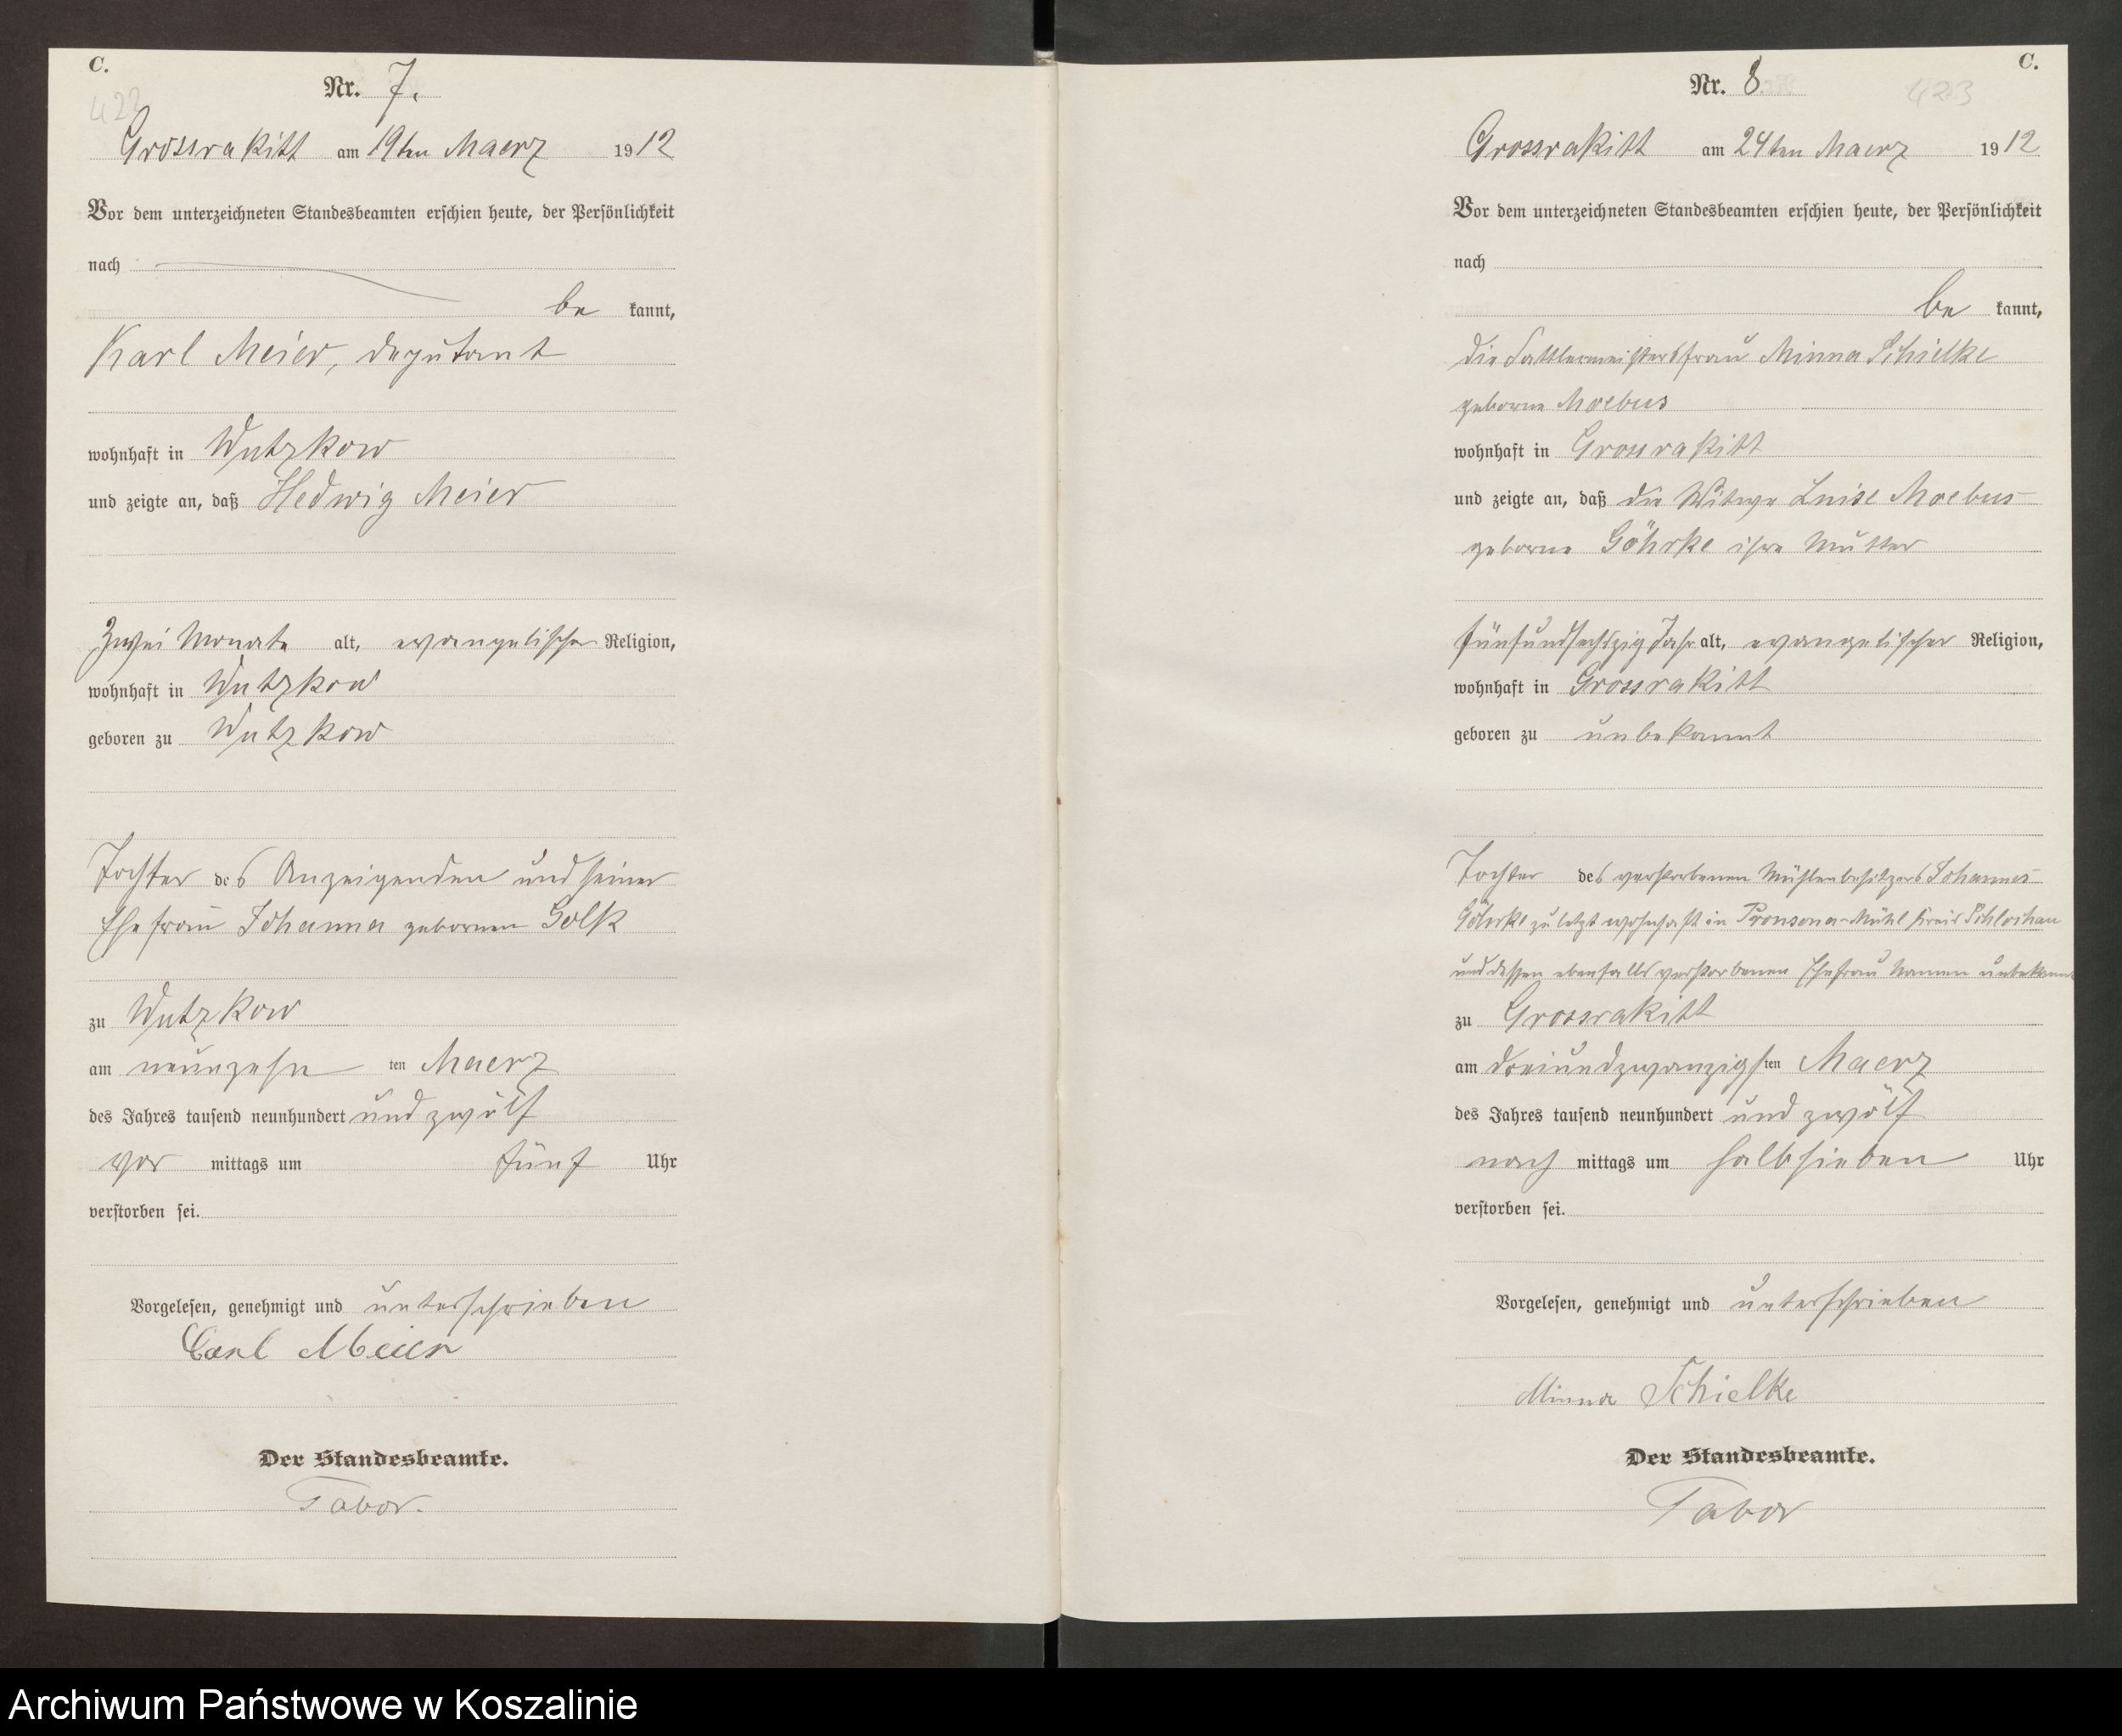 C.
422
Nr. 7.
Grossrakitt am 19ten Maerz 1912
Vor dem unterzeichneten Standesbeamten erschien heute, der Persönlichkeit
nach
be kannt,
Karl Meier, Deputant
wohnhaft in Wutzkow
und zeigte an, daß Hedwig Meier
Zwei Monate alt, evangelischer Religion,
wohnhaft in Wutzkow
geboren zu Wutzkow
Tochter des Anzeigenden und seiner
Ehefrau Johanna gebornen Golk
zu Wutzkow
am neunzehn ten Maerz
des Jahres tausend neunhundert und zwölf
vor mittags um fünf Uhr
verstorben sei.
Vorgelesen, genehmigt und unterschrieben
Carl Meier
Der Standesbeamte.
Tabor.
C.
Nr. 8. 423
Grossrakitt am 24ten Maerz 1912
Vor dem unterzeichneten Standesbeamten erschien heute, der Persönlichkeit
nach
be kannt,
die Sattlermeistersfrau Minna Schielke
geborne Moebus
wohnhaft in Grossrakitt
und zeigte an, daß die Witwe Luise Moebus
geborne Göhrke ihre Mutter
fünfundsechszig Jahr alt, evangelischer Religion,
wohnhaft in Grossrakitt
geboren zu unbekannt
Tochter des verstorbenen Mühlenbesitzers Johannes
Göhrke zuletzt wohnhaft in Kreis Schlochau
und dessen ebenfalls verstorbenen Ehefrau Namen unbekannt
zu Grossrakitt
am dreiundzwanzigsten Maerz
des Jahres tausend neunhundert und zwölf
nach mittags um halbsieben Uhr
verstorben sei.
Vorgelesen, genehmigt und unterschrieben
Minna Schielke
Der Standesbeamte.
Tabor
Archiwum Państwowe w Koszalinie